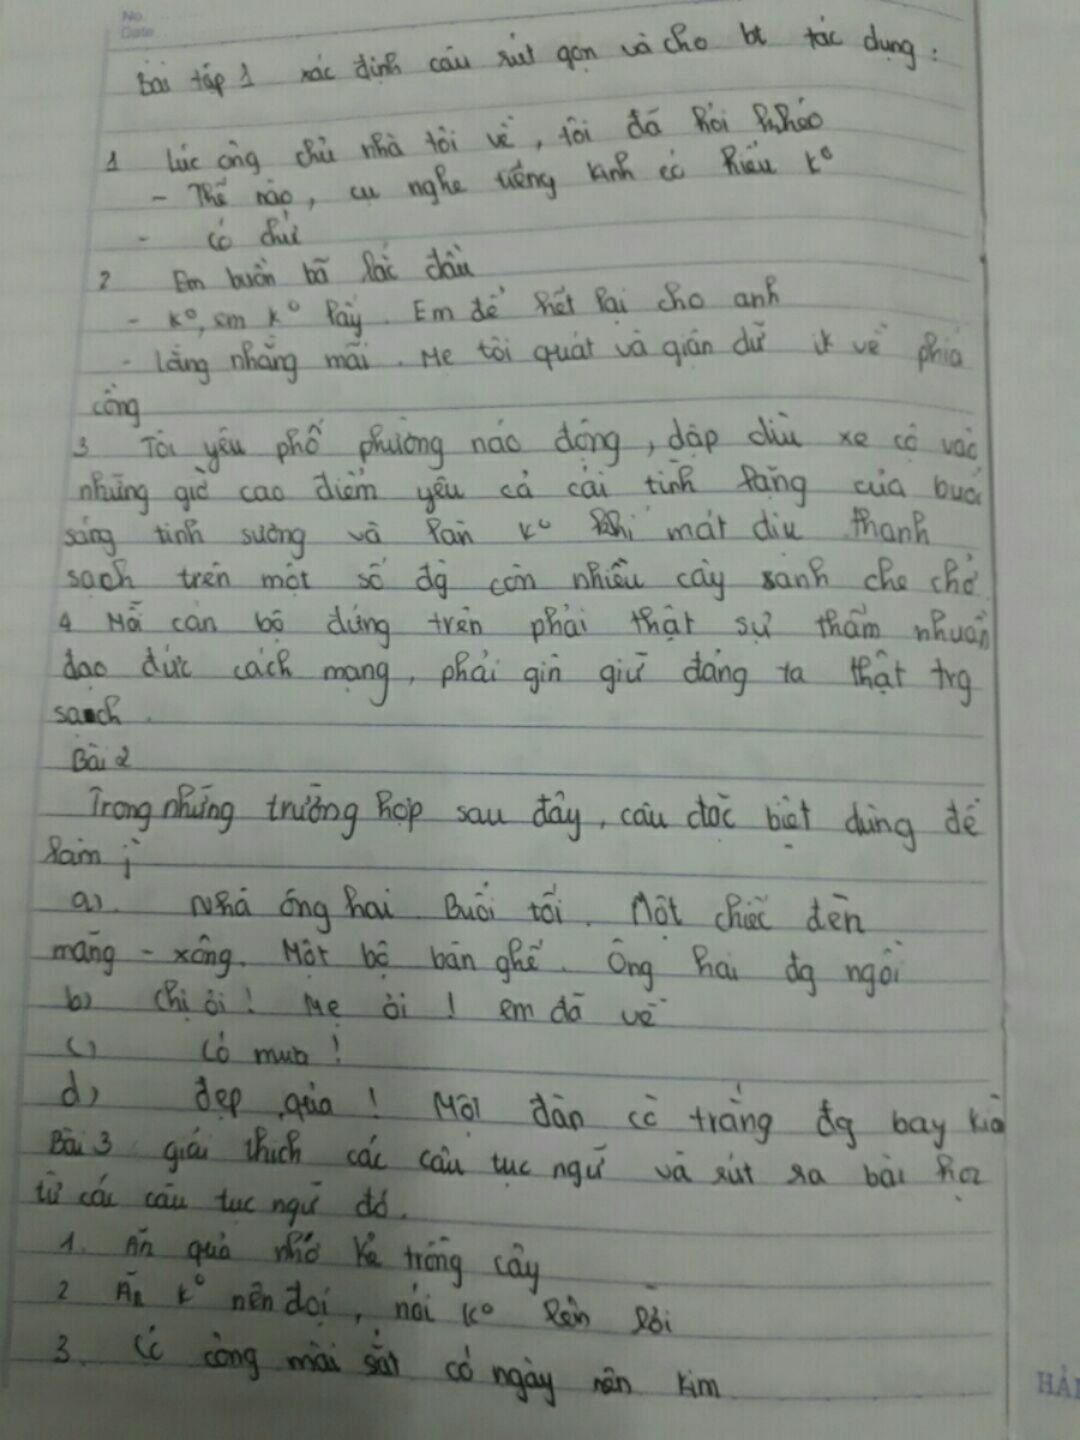 No.
Date
Bài tập 1 xác định câu rút gọn và cho bt tác dụng :
1 lúc ông chủ nhà tôi về, tôi đã hỏi khéo
- Thế nào, cụ nghe tiếng kinh có hiểu k°
- có chứ
2 Em buồn bã lắc đầu
- k°, em k° lấy. Em để hết lại cho anh
- lằng nhằng mãi. Mẹ tôi quát và giận dữ đi về phía
cổng
3 Tôi yêu phố phường náo động, dập dìu xe cộ vào
những giờ cao điểm yêu cả cái tĩnh lặng của buổi
sáng tinh sương và làn k° khí mát dịu thanh
sạch trên một số đg còn nhiều cây xanh che chở
4 Mỗi cán bộ đứng trên phải thật sự thấm nhuần
đạo đức cách mạng, phải gìn giữ đảng ta thật trg
sạch.
Bài 2
Trong những trường hợp sau đây, câu đặc biệt dùng để
làm j
a). Nhà ông hai. Buổi tối. Một chiếc đèn
măng - xông. Một bộ bàn ghế. Ông hai đg ngồi
b) chị ơi! Mẹ ơi! em đã về
c) Có mưa!
d) đẹp quá! Một đàn cò trắng đg bay kìa
Bài 3 giải thích các câu tục ngữ và rút ra bài học
từ các câu tục ngữ đó.
1. Ăn quả nhớ kẻ trồng cây
2 Ăn k° nên đọi, nói k° lên lời
3. Có công mài sắt có ngày nên kim
HẢI